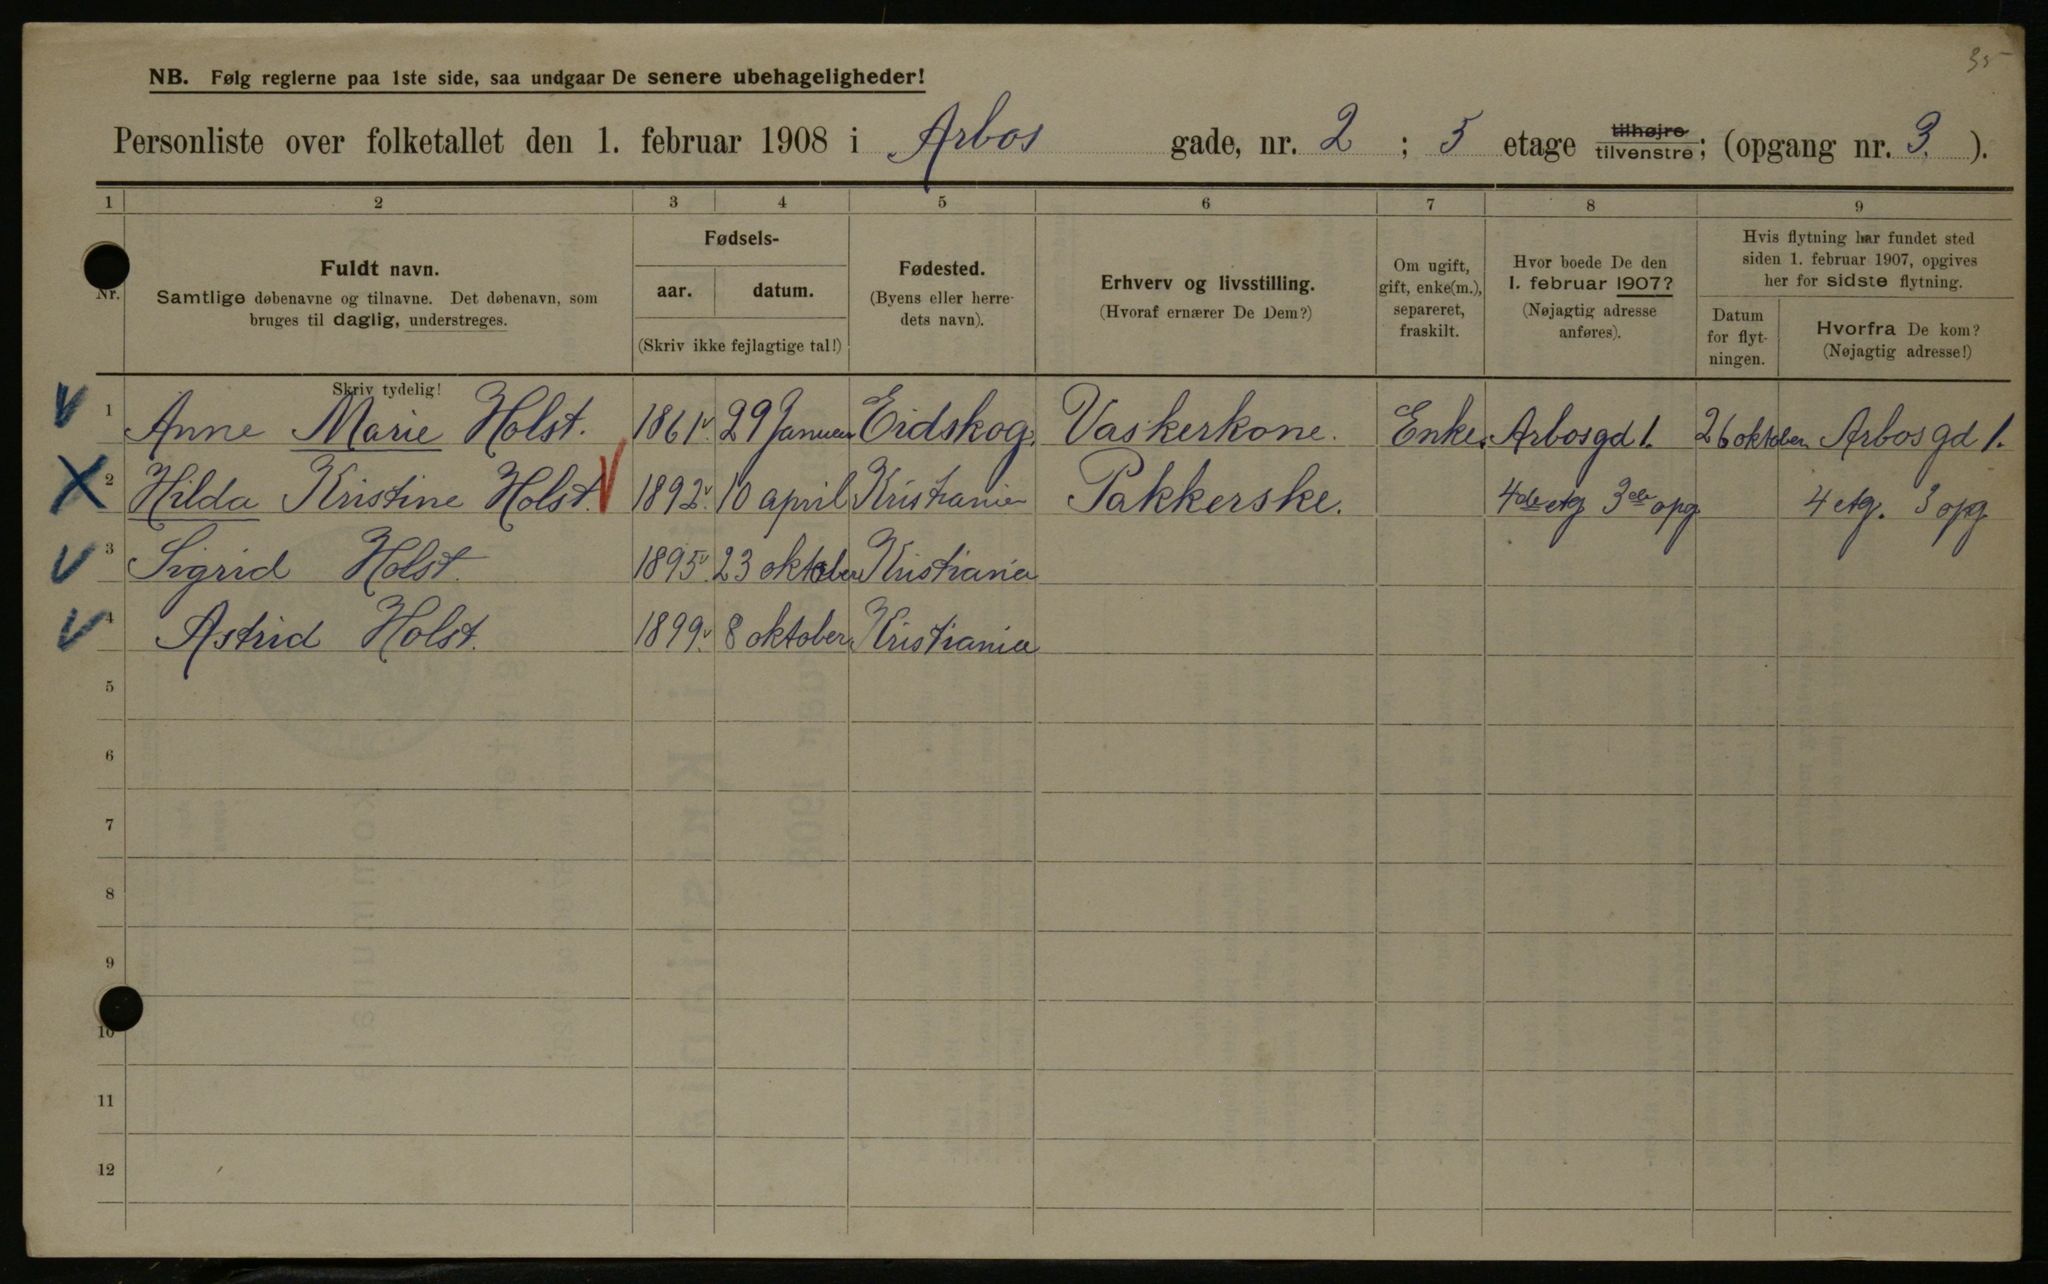 35
NB. Følg reglerne paa 1ste side, saa undgaar De senere ubehageligheder!
Personliste over folketallet den 1. februar 1908 i Arbos gade, nr. 2 ; 5 etage tilhøjre tilvenstre; (opgang nr. 3 ).
1 2 3 4 5 6 7 8 9
Nr.
Fuldt navn.
Samtlige døbenavne og tilnavne. Det døbenavn, som
bruges til daglig, understreges.
Fødsels-
aar. datum.
(Skriv ikke fejlagtige tal!)
Fødested.
(Byens eller herre-
dets navn).
Erhverv og livsstilling.
(Hvoraf ernærer De Dem?)
Om ugift,
gift, enke(m.),
separeret,
fraskilt.
Hvor boede De den
1. februar 1907?
(Nøjagtig adresse
anføres).
Hvis flytning har fundet sted
siden 1. februar 1907, opgives
her for sidste flytning.
Datum
for flyt-
ningen.
Hvorfra De kom?
(Nøjagtig adresse!)
Skriv tydelig!
1 Anne Marie Holst. 1861. 29 Januar Eidskog. Vaskerkone. Enke. Arbosgd 1. 26 oktober Arbosgd 1.
2 Hilda Kristine Holst. 1892. 10 april Kristiania Pakkerske. 4de etg 3die opg 4 etg. 3 opg
3 Sigrid Holst. 1895. 23 oktober Kristiania
4 Astrid Holst. 1899. 8 oktober Kristiania
5
6
7
8
9
10
11
12